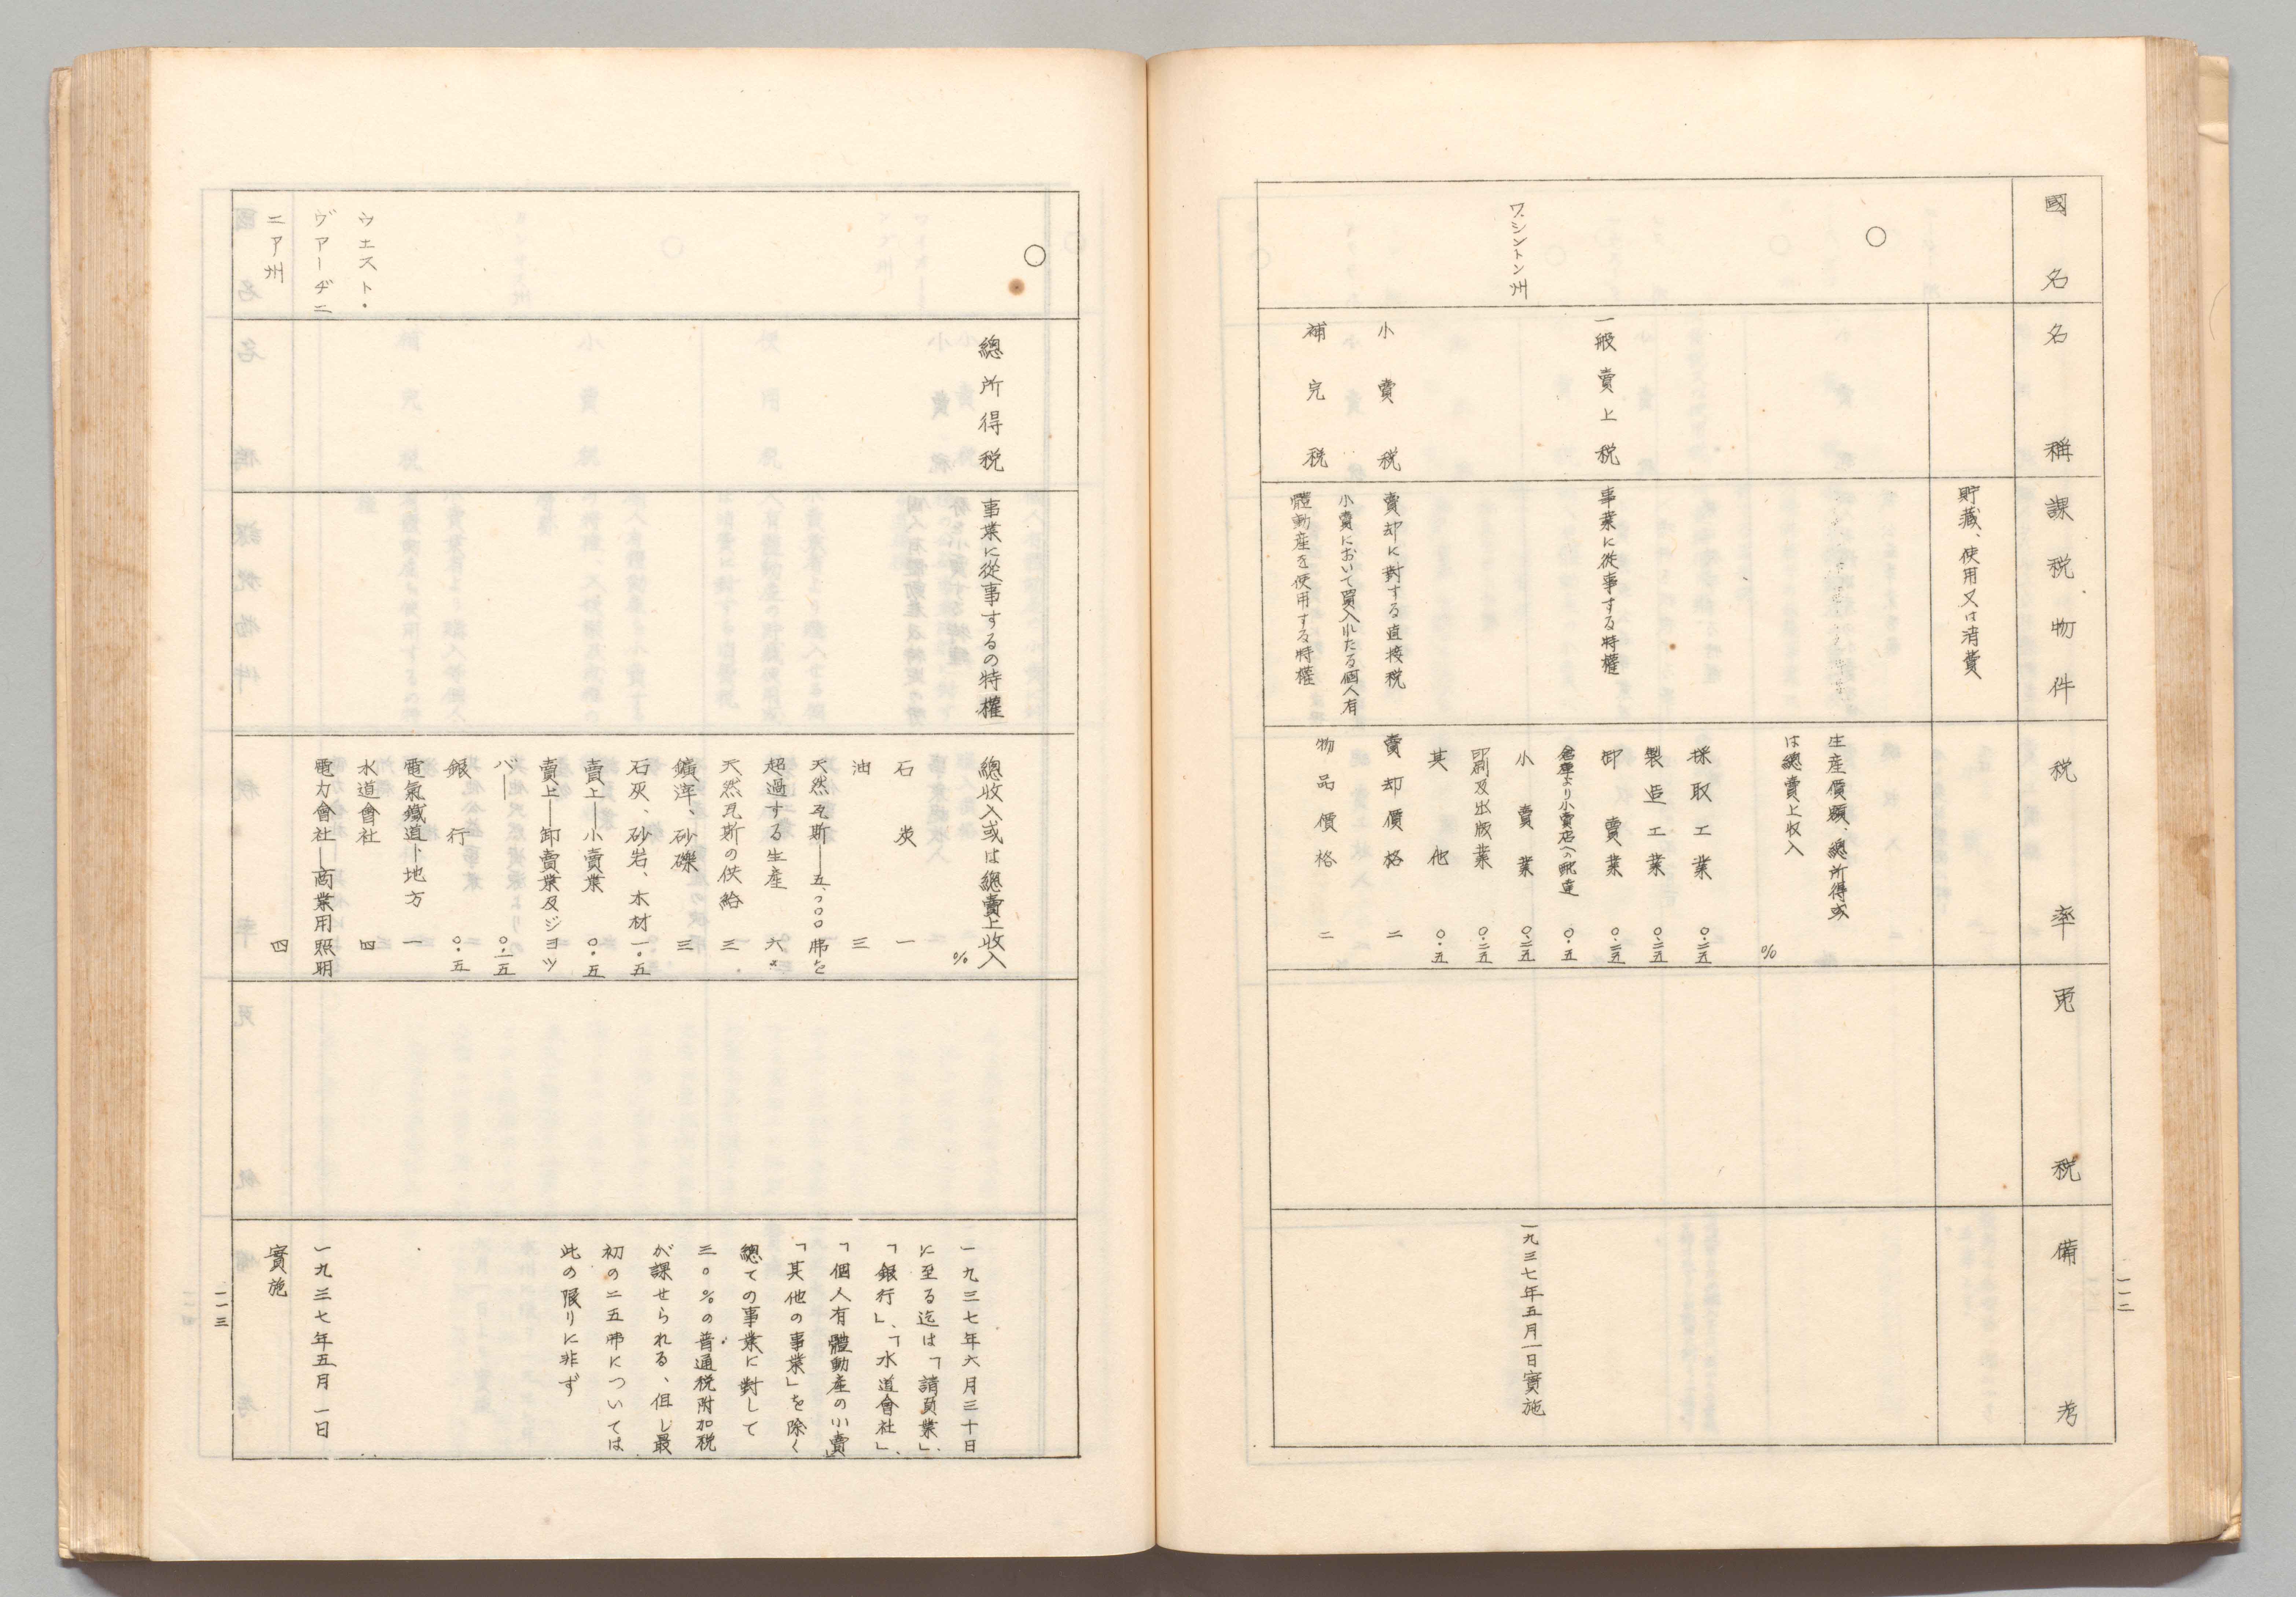 國名
名稱
課税物件
税率
免税
備考
一一二
貯藏、使用又は消費
○
生産價額、總所得或
は總賣上收入
%
採取工業 〇・二五
製造工業 〇・二五
一般賣上税
事業に從事する特權
卸賣業 〇・二五
倉庫より小賣店への配達 〇・五
小賣業 〇・二五
ワシントン州
印刷及出版業 〇・二五
一九三七年五月一日實施
其他 〇・五
小賣税
賣却に對する直接税
賣却價格 二
補完税
小賣において買入れたる個人有
體動産を使用する特權
物品價格 二
○
總所得税
事業に從事するの特權
總收入或は總賣上收入
%
石炭 一
油 三
天然瓦斯――五、〇〇〇弗を
超過する生産 六・
天然瓦斯の供給 三
鑛滓、砂礫 三
石灰、砂岩、木材 一・五
賣上――小賣業 〇・五
賣上――卸賣業及ジヨツ
バー―― 〇・一五
銀行 〇・五
電氣鐵道―地方 一
水道會社 四
電力會社―商業用照明
四
一九三七年六月三十日
に至る迄は「請負業」、
「銀行」、「水道會社」、
「個人有體動産の小賣」
「其他の事業」を除く
總ての事業に對して
三〇%の普通税附加税
が課せられる、但し最
初の二五弗については
此の限りに非ず
ウエスト・
ヴアーヂニ
ニア州
一九三七年五月一日
實施
一一三